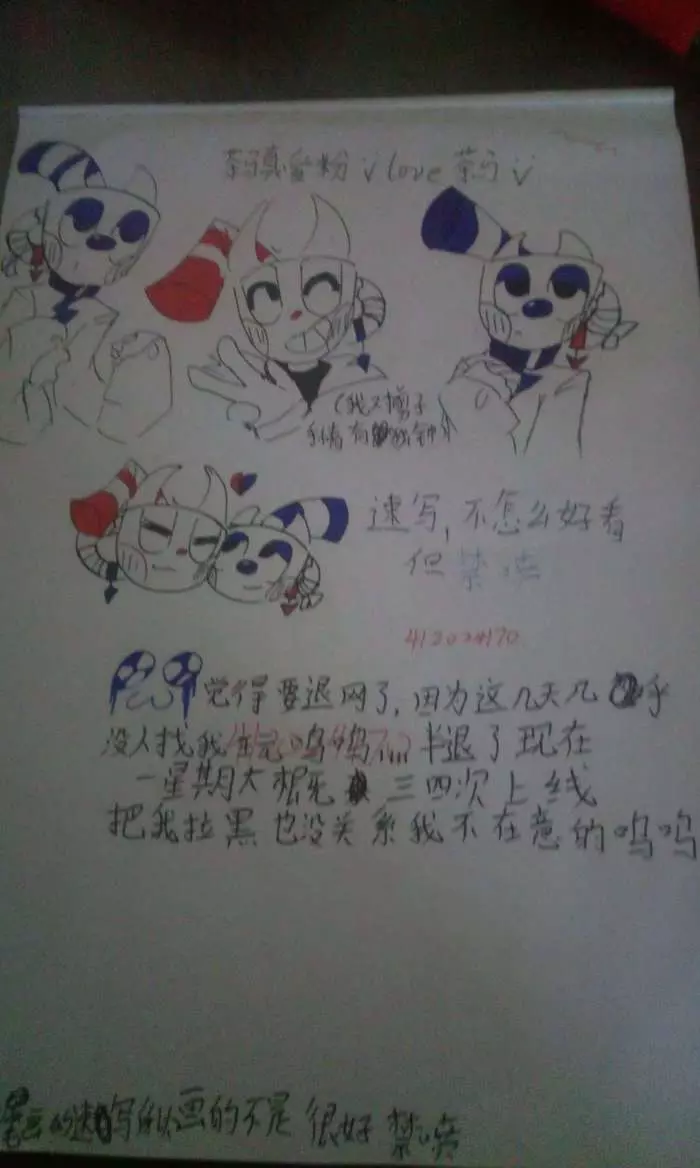 真爱粉 i love
(我又
速写,不怎么好看
但禁喷
觉得要退网了,因为这几天几乎
没人找我 呜呜 半退了现在
一星期大概 三四次上线
把我拉黑也没关系我不在意的呜呜
画的不是很好 禁喷